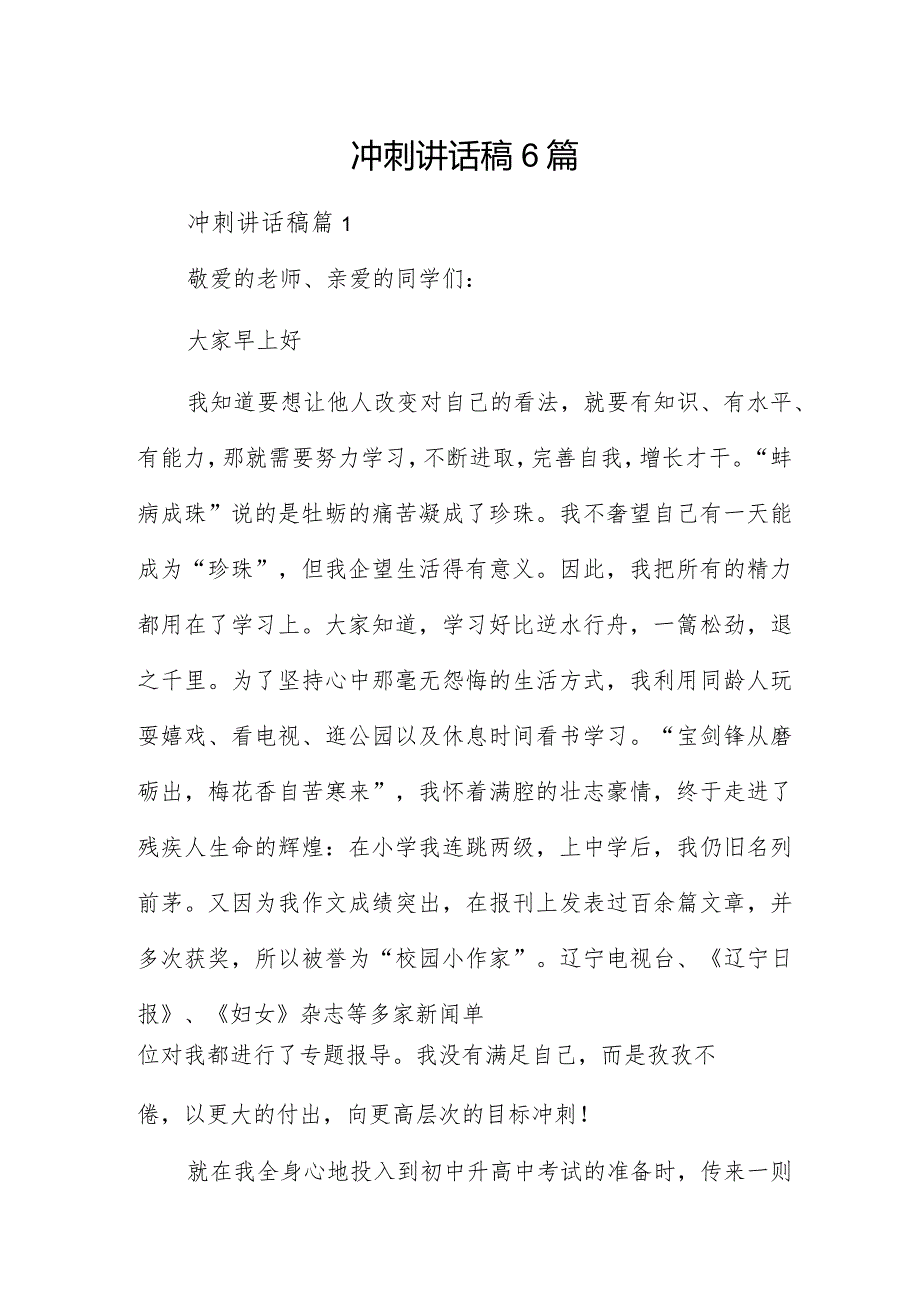 冲刺讲话稿6篇
冲刺讲话稿篇1
敬爱的老师、亲爱的同学们：
大家早上好
我知道要想让他人改变对自己的看法，就要有知识、有水平、
有能力，那就需要努力学习，不断进取，完善自我，增长才干。“蚌
病成珠”说的是牡蛎的痛苦凝成了珍珠。我不奢望自己有一天能
成为“珍珠”，但我企望生活得有意义。因此，我把所有的精力
都用在了学习上。大家知道，学习好比逆水行舟，一篙松劲，退
之千里。为了坚持心中那毫无怨悔的生活方式，我利用同龄人玩
耍嬉戏、看电视、逛公园以及休息时间看书学习。“宝剑锋从磨
砺出，梅花香自苦寒来”，我怀着满腔的壮志豪情，终于走进了
残疾人生命的辉煌：在小学我连跳两级，上中学后，我仍旧名列
前茅。又因为我作文成绩突出，在报刊上发表过百余篇文章，并
多次获奖，所以被誉为“校园小作家”。辽宁电视台、《辽宁日
报》、《妇女》杂志等多家新闻单
位对我都进行了专题报导。我没有满足自己，而是孜孜不
倦，以更大的付出，向更高层次的目标冲刺！
就在我全身心地投入到初中升高中考试的准备时，传来一则